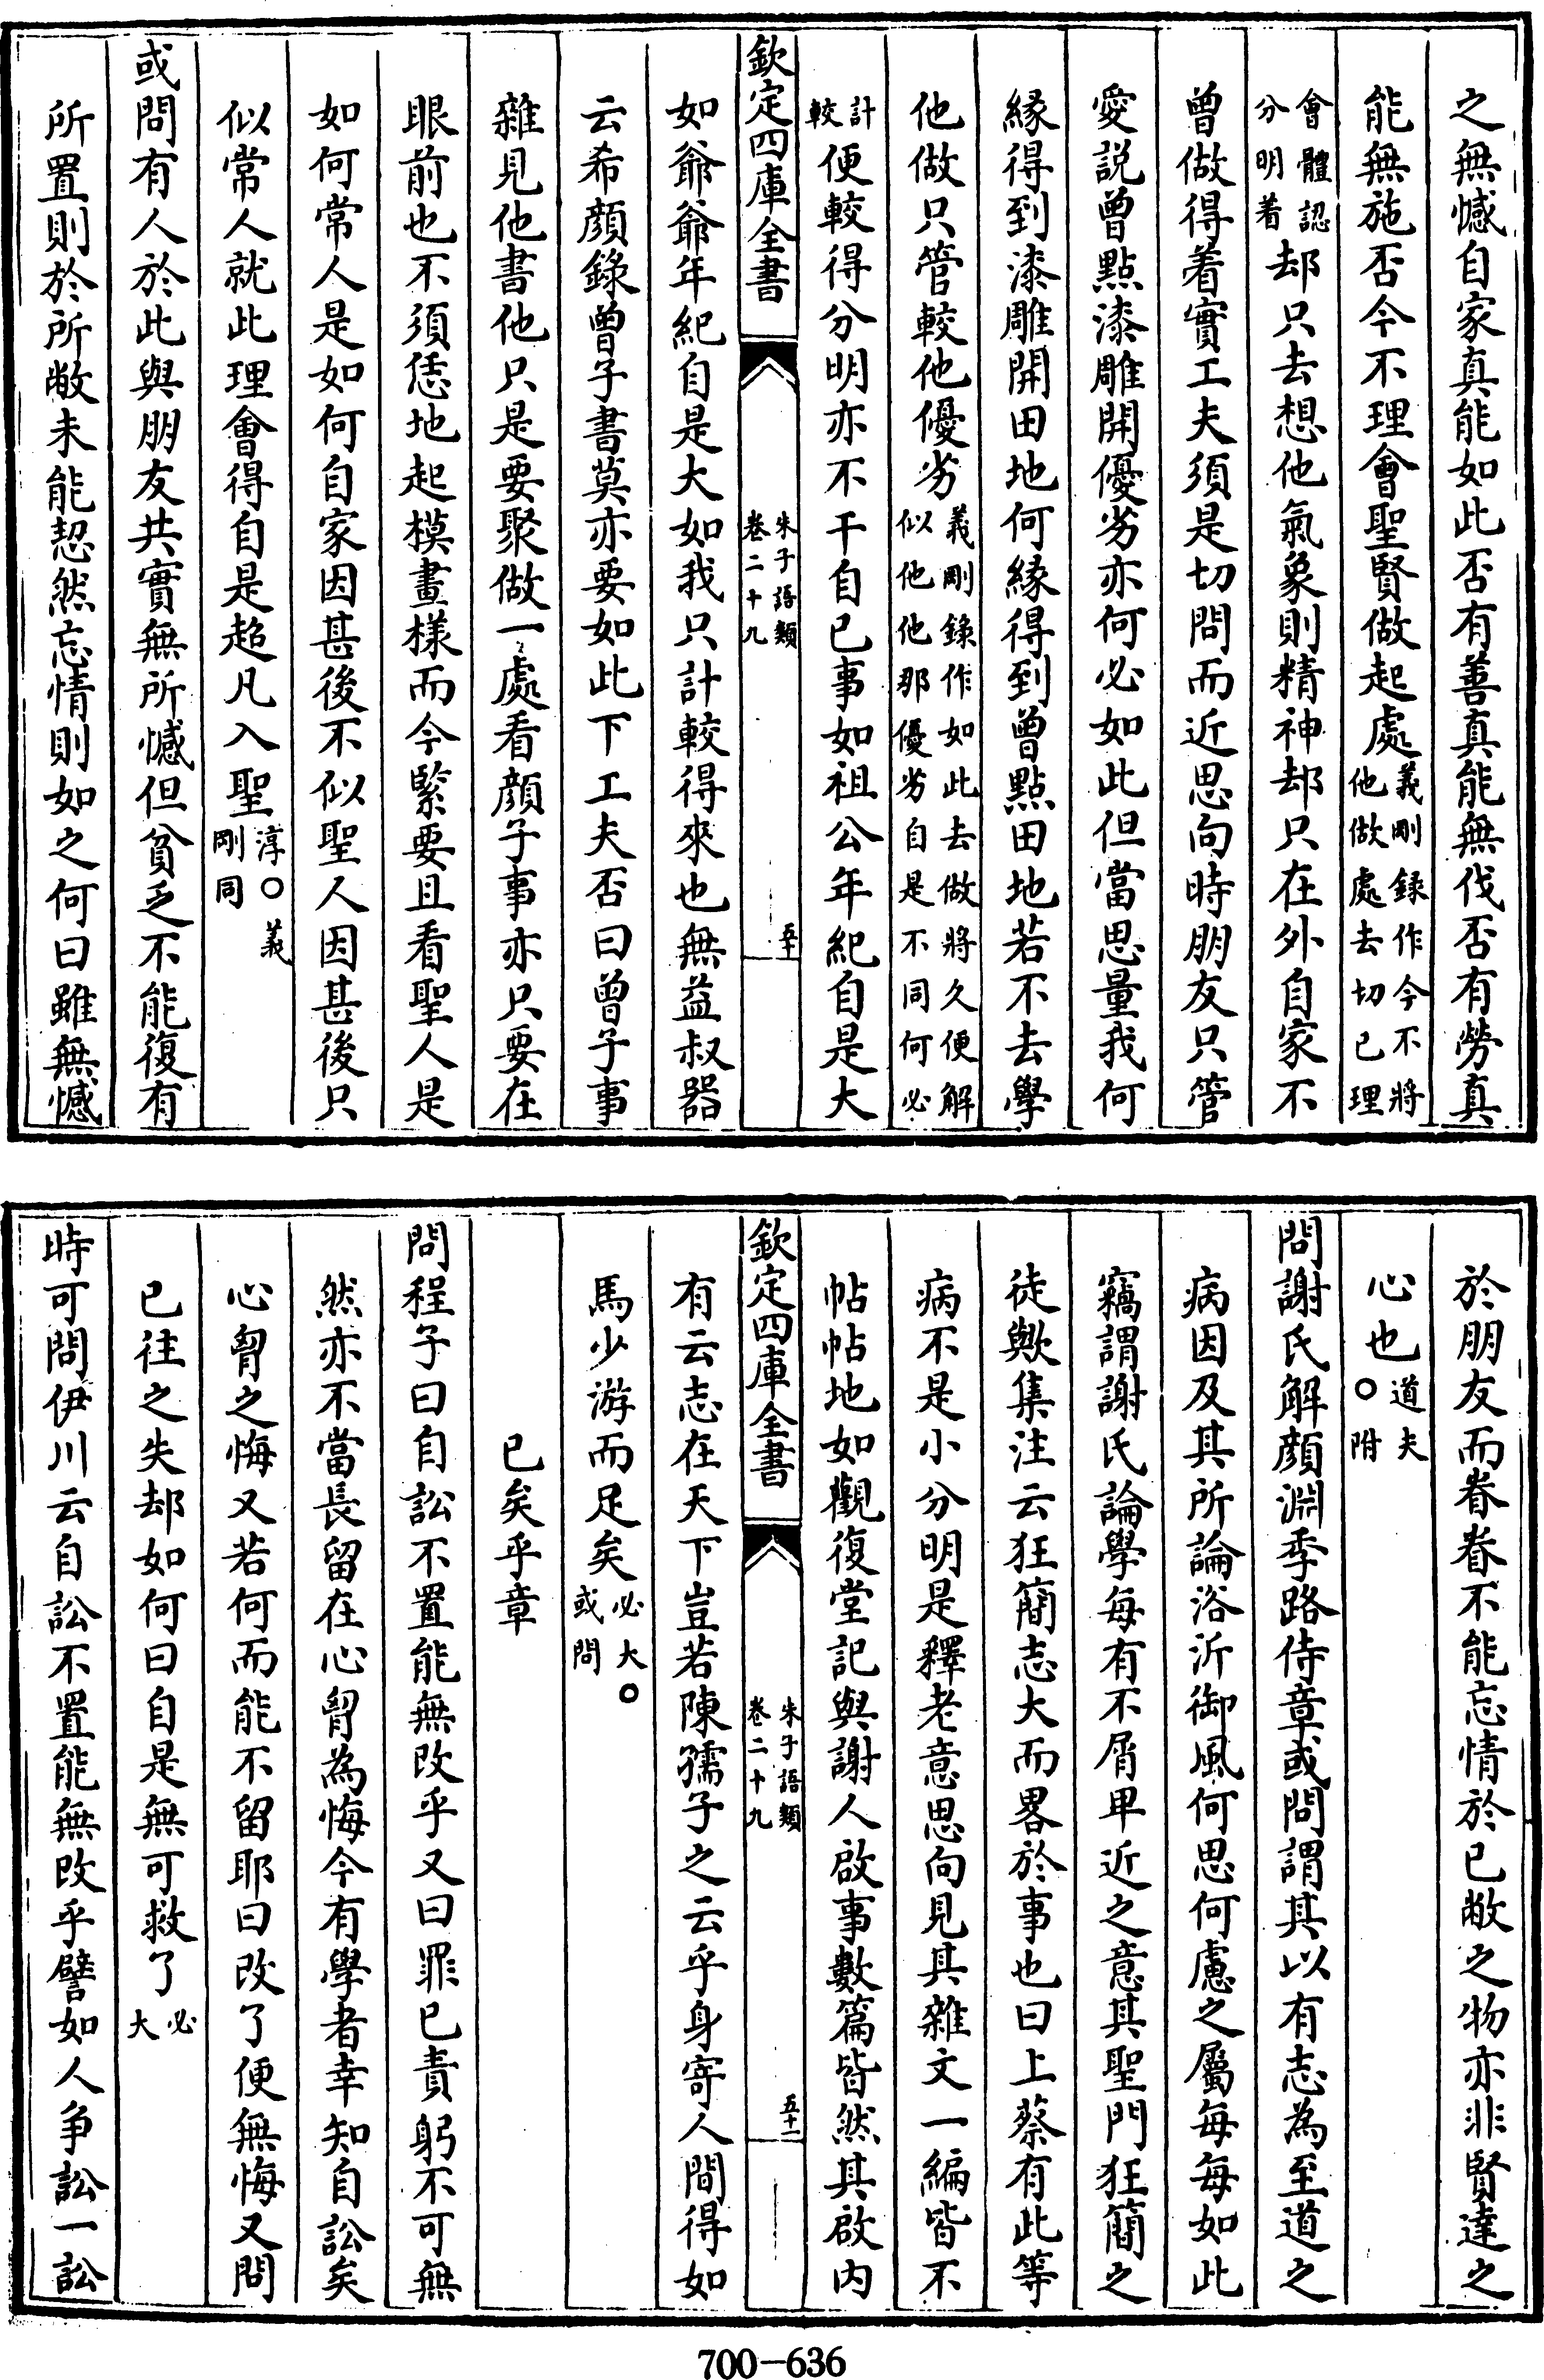 之無憾自家真能如此否有善真能無伐否有勞真
能無施否今不理會聖賢做起處義剛録作今不將他做處去切已理
會體認分明着却只去想他氣象則精神却只在外自家不
曾做得着實工夫須是切問而近思向時朋友只管
愛説曾點漆雕開優劣亦何必如此但當思量我何
緣得到漆雕開田地何緣得到曾點田地若不去學
他做只管較他優劣義剛錄作如此去做將久便解似他他那優劣自是不同何必
計較便較得分明亦不干自已事如祖公年紀自是大
欽定四庫全書
朱子語類
卷二十九
五十
如爺爺年紀自是大如我只計較得來也無益叔器
云希顔錄曾子書莫亦要如此下工夫否曰曾子事
雜見他書他只是要聚做一處看顔子事亦只要在
眼前也不須恁地起模畫樣而今緊要且看聖人是
如何常人是如何自家因甚後不似聖人因甚後只
似常人就此理會得自是超凡入聖淳○義剛同
或問有人於此與朋友共實無所憾但貧乏不能復有
所置則於所敝未能恝然忘情則如之何曰雖無憾
於朋友而眷眷不能忘情於已敝之物亦非賢達之
心也道夫○附
問謝氏解顔淵季路侍章或問謂其以有志為至道之
病因及其所論浴沂御風何思何慮之屬每每如此
竊謂謝氏論學每有不屑卑近之意其聖門狂簡之
徒歟集注云狂簡志大而畧於事也曰上蔡有此等
病不是小分明是釋老意思向見其雜文一編皆不
帖帖地如觀復堂記與謝人啟事數篇皆然其啟内
欽定四庫全書
朱子語類
卷二十九
五十一
有云志在天下豈若陳孺子之云乎身寄人間得如
馬少游而足矣必大○或問
已矣乎章
問程子曰自訟不置能無改乎又曰罪已責躬不可無
然亦不當長留在心胷為悔今有學者幸知自訟矣
心胷之悔又若何而能不留耶曰改了便無悔又問
已往之失却如何曰自是無可救了必大
時可問伊川云自訟不置能無改乎譬如人爭訟一訟
700-636